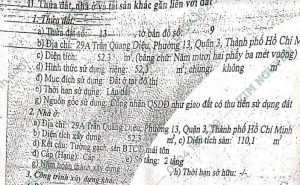 II. Thửa đất, nhà ở và tài sản khác gắn liền với đất
1. Thửa đất:
a) Thửa đất số: 13 tờ bản đồ số: 9
b) Địa chỉ: 29A Trần Quang Diệu, Phường 13, Quận 3, Thành phố Hồ Chí
c) Diện tích: 52,3 m², (bằng chữ: Năm mươi hai phẩy ba mét vuông)
d) Hình thức sử dụng: riêng: 52,3 m²; chung: không m²
đ) Mục đích sử dụng: Đất ở tại đô thị
e) Thời hạn sử dụng: Lâu dài
g) Nguồn gốc sử dụng: Công nhận QSDĐ như giao đất có thu tiền sử dụng đất
2. Nhà ở:
a) Địa chỉ: 29A Trần Quang Diệu, Phường 13, Quận 3, Thành phố Hồ Chí Minh
b) Diện tích xây dựng: 52,3 m² c) Diện tích sàn: 110,1 m²
d) Kết cấu: Tường gạch, sàn BTCT, mái tôn
đ) Cấp (Hạng): Cấp e) Số tầng: 2 tầng
g) Năm hoàn thành xây dựng: h) Thời hạn sở hữu: -/-
3. Công trình xây dựng khác: